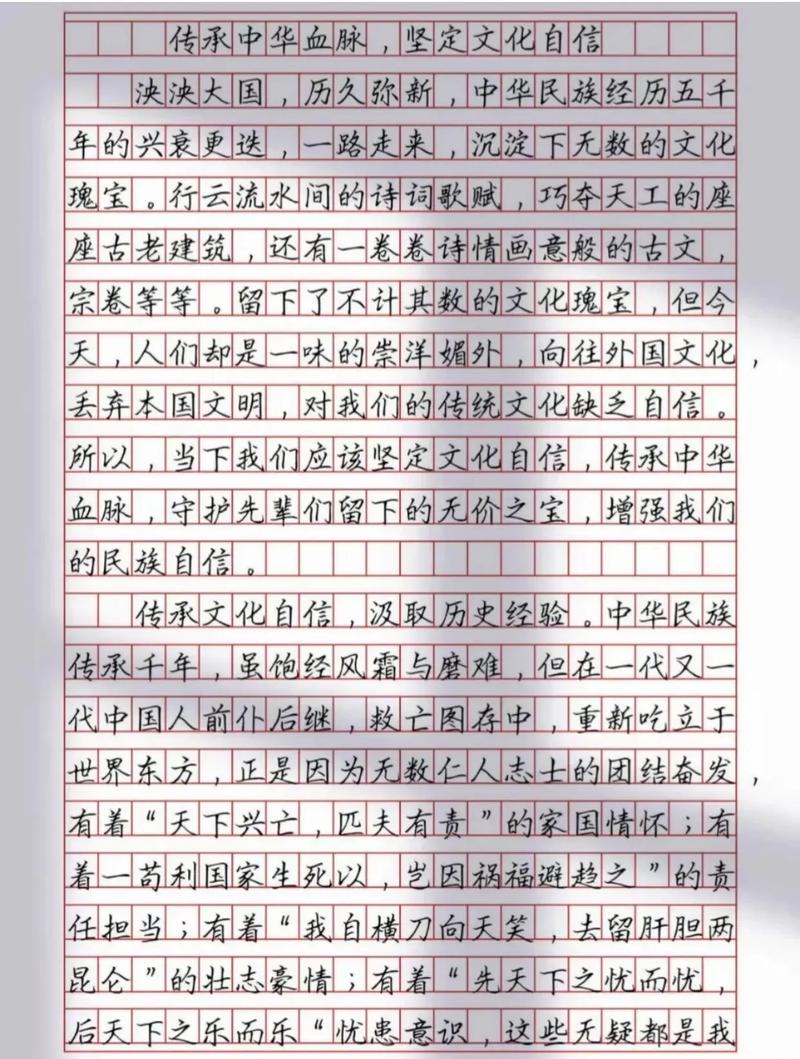 传承中华血脉，坚定文化自信
泱泱大国，历久弥新，中华民族经历五千
年的兴衰更迭，一路走来，沉淀下无数的文化
瑰宝。行云流水间的诗词歌赋，巧夺天工的座
座古老建筑，还有一卷卷诗情画意般的古文，
宗卷等等。留下了不计其数的文化瑰宝，但今
天，人们却是一味的崇洋媚外，向往外国文化，
丢弃本国文明，对我们的传统文化缺乏自信。
所以，当下我们应该坚定文化自信，传承中华
血脉，守护先辈们留下的无价之宝，增强我们
的民族自信。
传承文化自信，汲取历史经验。中华民族
传承千年，虽饱经风霜与磨难，但在一代又一
代中国人前仆后继，救亡图存中，重新吃立于
世界东方，正是因为无数仁人志士的团结奋发，
有着“天下兴亡，匹夫有责”的家国情怀；有
着一苟利国家生死以，岂因祸福避趋之”的责
任担当；有着“我自横刀向天笑，去留肝胆两
昆仑”的壮志豪情；有着“先天下之忧而忧，
后天下之乐而乐“忧患意识，这些无疑都是我